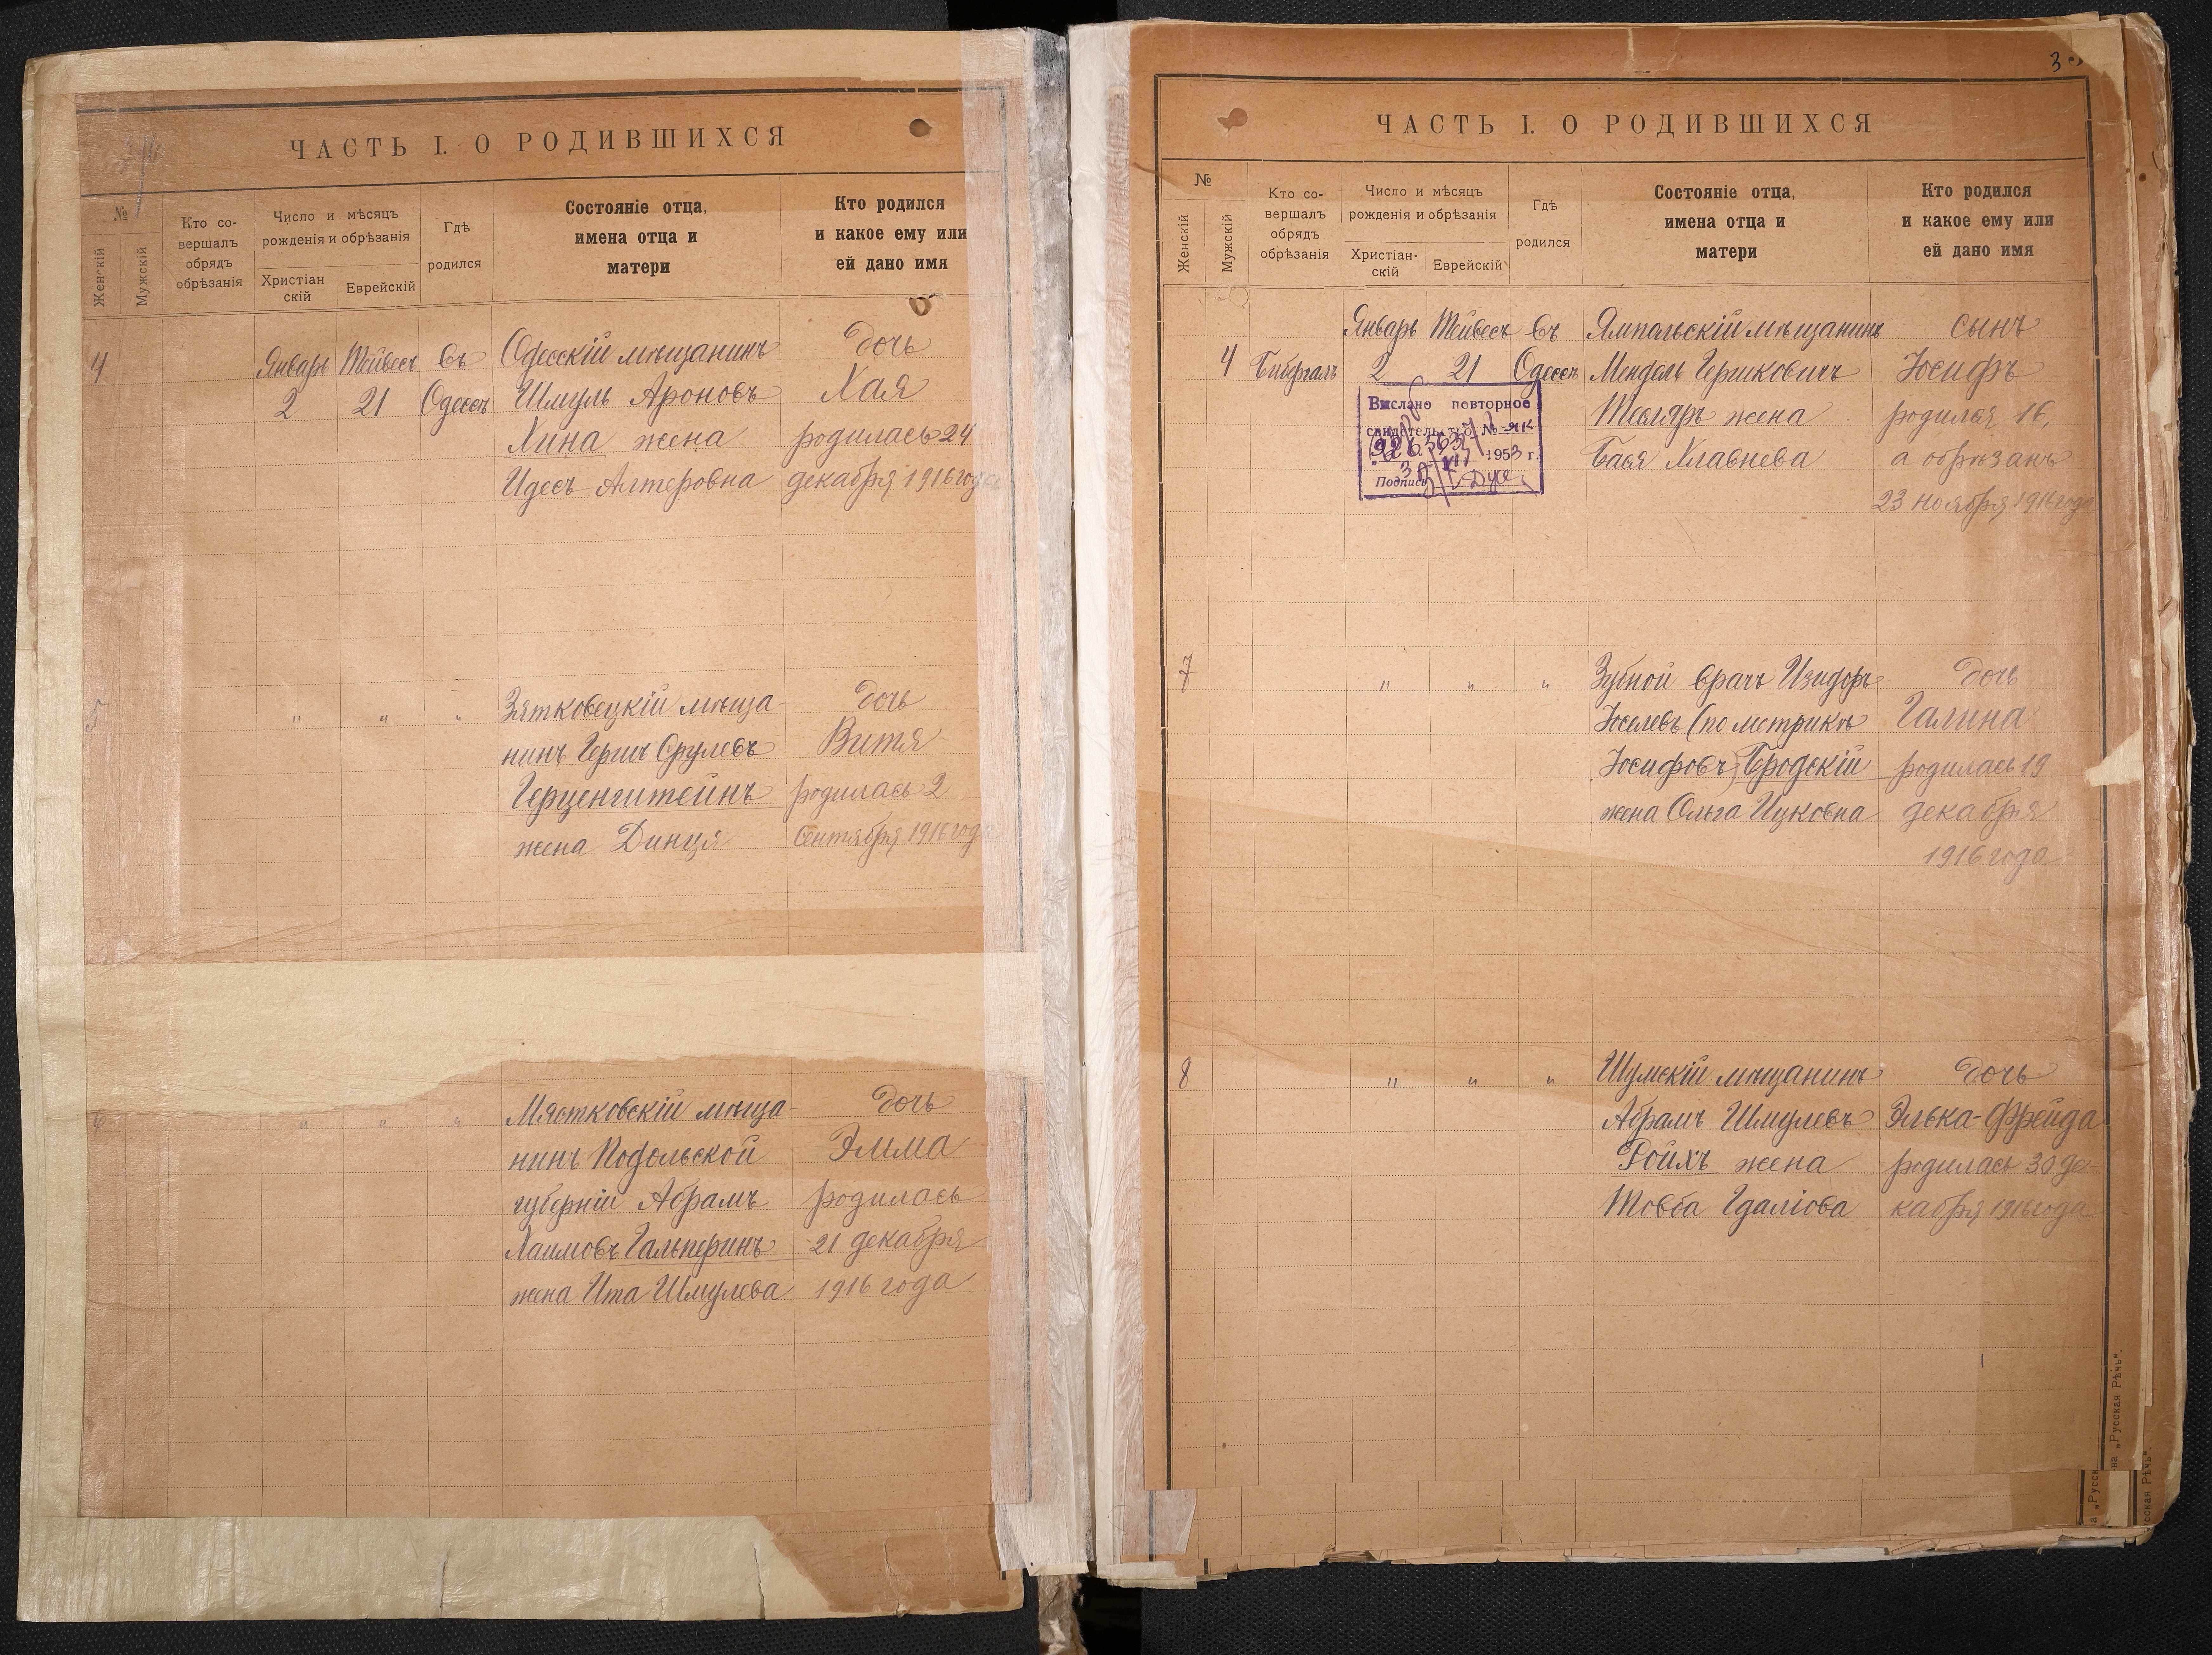 ЧАСТЬ I. О РОДИВШИХСЯ
№
Женскій
Мужскій
Кто со-
вершалъ
обрядъ
обрѣзанія
Число и мѣсяцъ
рожденія и обрѣзанія
Христіан
скій
Еврейскій
Гдѣ
родился
Состояніе отца,
имена отца и
матери
Кто родился
и какое ему или
ей дано имя
4
Январь Тейвесъ въ Одесскій мѣщанинъ дочь
2 21 Одессѣ Шмуль Ароновъ Хая
Хина жена родилась 24
Идесъ Алтеровна декабря 1916 года
5 " " " Зятковецкій мѣща- дочь
нинъ Гершъ Срулевъ Витя
Герценштейнъ родилась 2
жена Динця Сентября 1916 года
6 " " " Мястковскій мѣща- дочь
нинъ Подольской Эмма
губерніи Абрамъ родилась
Хаимовъ Гальперинъ 21 декабря
жена Ита Шмулева 1916 года
3
ЧАСТЬ I. О РОДИВШИХСЯ
№
Женскій
Мужскій
Кто со-
вершалъ
обрядъ
обрѣзанія
Число и мѣсяцъ
рожденія и обрѣзанія
Христіан-
скій
Еврейскій
Гдѣ
родился
Состояніе отца,
имена отца и
матери
Кто родился
и какое ему или
ей дано имя
Январь Тейвесъ въ Ямпольскій мѣщанинъ сынъ
4 Бибргалъ 2 21 Одессѣ Мендель Гершковичъ Іосифъ
Тесляръ жена родился 16,
Бася Хлавнева а обрѣзанъ
23 ноября 1916 года
Выслано повторное
свидетельство №
1953 г.
Подпись
7 " " " Зубной врачъ Изидоръ дочь
Іоселевъ (по метрикѣ Галина
Іосифовъ) Бродскій родилась 19
жена Ольга Ицковна декабря
1916 года
8 " " " Шумскій мѣщанинъ дочь
Абрамъ Шмулевъ Элька-Фрейда
Ройхъ жена родилась 30 де-
Товба Гдаліова кабря 1916 года
ва „Русская Рѣчь“.
а „Русск
сская Рѣчь“.